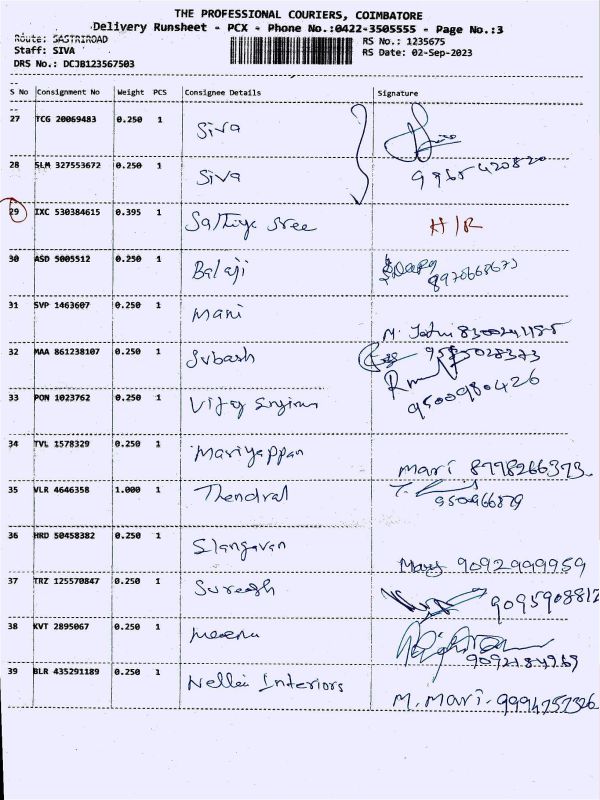 THE PROFESSIONAL COURIERS, COIMBATORE
Delivery Runsheet - PCX - Phone No.:0422-3505555 - Page No.:3
Route: SASTRIROAD
Staff: SIVA
DRS No.: DCJB123567503
RS No.: 1235675
RS Date: 02-Sep-2023
S No Consignment No Weight PCS Consignee Details Signature
27 TCG 20069483 0.250 1 Siva
28 SLM 327553672 0.250 1 Siva 9965420820
29 IXC 530384615 0.395 1 Sathiya Sree H/R
30 ASD 5005512 0.250 1 Balaji
31 SVP 1463607 0.250 1 Mani
32 MAA 861238107 0.250 1 Subash
33 PON 1023762 0.250 1 9500980426
34 TVL 1578329 0.250 1 Mariyappan mari 8778266373
35 VLR 4646358 1.000 1 Thendral
36 HRD 50458382 0.250 1 Elangavan 9092999959
37 TRZ 125570847 0.250 1 Suresh 9095908812
38 KVT 2895067 0.250 1 meenu
39 BLR 435291189 0.250 1 Nellai Interiors M. Mari. 9994757326